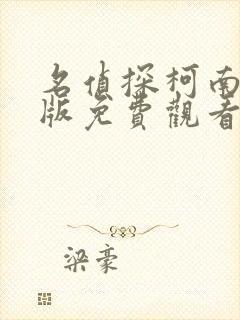 名偵探柯南
版免費觀看
梁豪